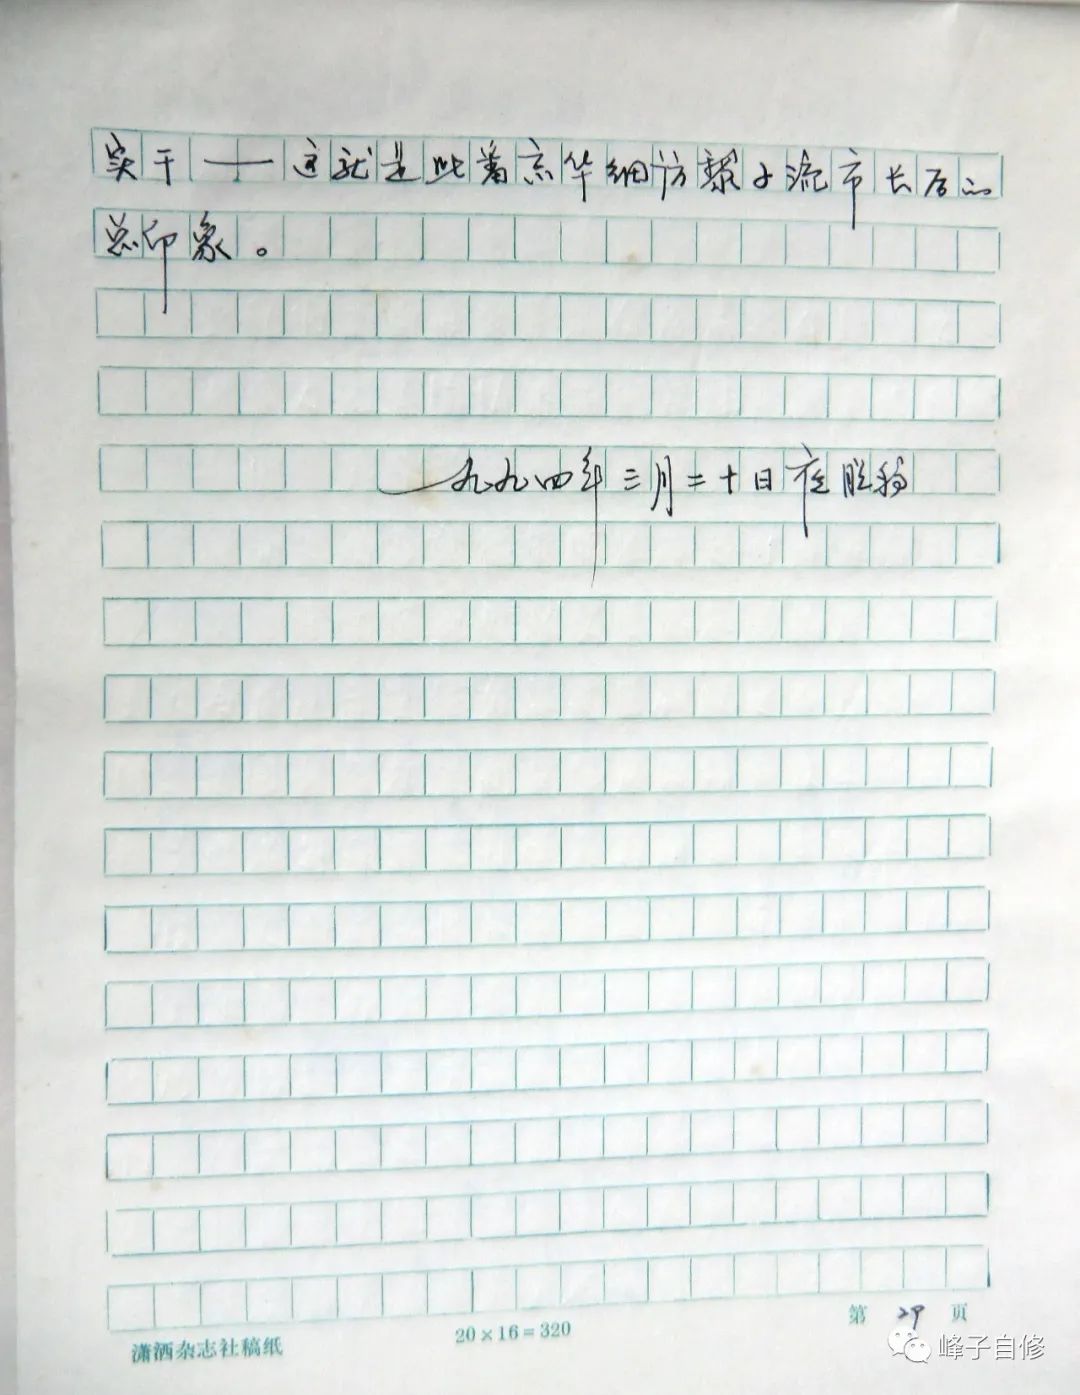 实干——这就是此番京华细访黎子流市长后的
总印象。
一九九四年三月二十日夜脱稿
第 29 页
潇洒杂志社稿纸
20×16=320
峰子自修